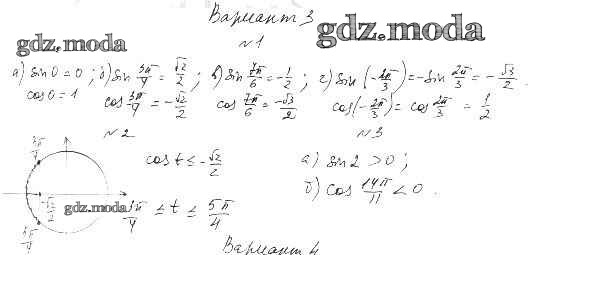 Вариант 3
gdz.moda gdz.moda
№1
а) sin 0 = 0; б) sin 3π/4 = √2/2; в) sin 7π/6 = -1/2; г) sin(-2π/3) = -sin 2π/3 = -√3/2.
cos 0 = 1 cos 3π/4 = -√2/2 cos 7π/6 = -√3/2 cos(-2π/3) = cos 2π/3 = 1/2
№2 №3
3π/4 cos t ≤ -√2/2 а) sin 2 > 0;
б) cos 14π/11 < 0.
-√2/2 gdz.moda 3π/4 ≤ t ≤ 5π/4
5π/4
Вариант 4